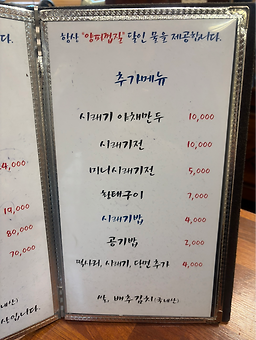 다.
24,000
19,000
80,000
70,000
내산)
산입니다.
항상 "양파껍질" 달인 물을 제공합니다.
추가메뉴
시래기 야채만두 10,000
시래기전 10,000
미니시래기전 5,000
황태구이 7,000
시래기밥 4,000
공기밥 2,000
떡사리, 시래기, 당면 추가 4,000
쌀, 배추김치(국내산)